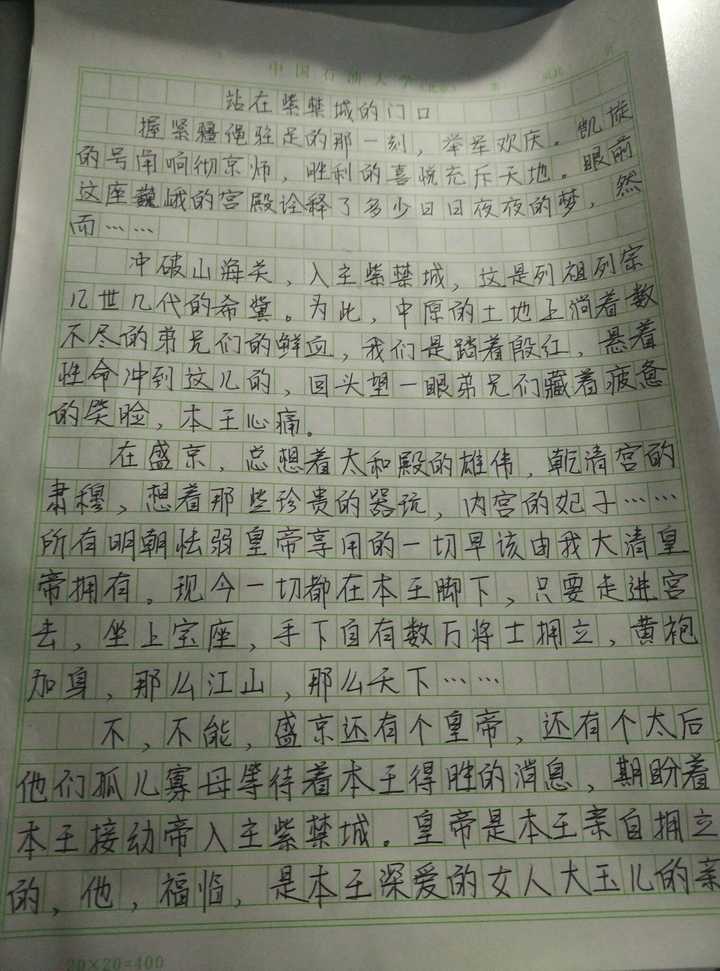 中国石油大学
站在紫禁城的门口
握紧疆绳驻足的那一刻，举军欢庆。凯旋
的号角响彻京师，胜利的喜悦充斥天地。眼前
这座巍峨的宫殿诠释了多少日日夜夜的梦，然
而……
冲破山海关，入主紫禁城，这是列祖列宗
几世几代的希冀。为此，中原的土地上淌着数
不尽的弟兄们的鲜血，我们是踏着殷红，悬着
性命冲到这儿的，回头望一眼弟兄们藏着疲惫
的笑脸，本王心痛。
在盛京，总想着太和殿的雄伟，乾清宫的
肃穆，想着那些珍贵的器玩，内宫的妃子……
所有明朝怯弱皇帝享用的一切早该由我大清皇
帝拥有。现今一切都在本王脚下，只要走进宫
去，坐上宝座，手下自有数万将士拥立，黄袍
加身，那么江山，那么天下……
不，不能，盛京还有个皇帝，还有个太后，
他们孤儿寡母等待着本王得胜的消息，期盼着
本王接幼帝入主紫禁城。皇帝是本王亲自拥立
的，他，福临，是本王深爱的女人大玉儿的亲
20×20=400